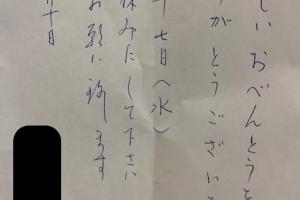 しいおべんとうを
がとうござい
七日(水)
休みにして下さい
お願い致します
十日